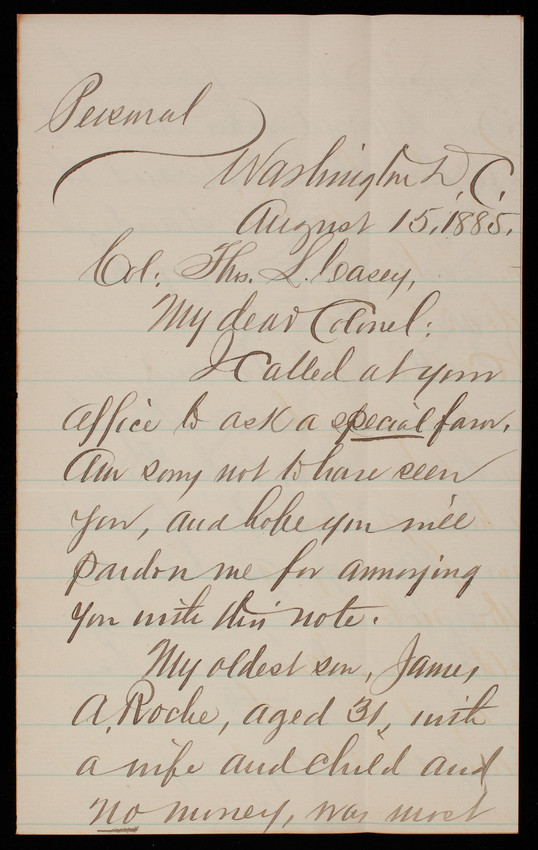 Personal
Washington D.C.
August 15, 1885.
Col: Thos. L. Casey,
My dear Colonel:
I called at your
office to ask a special favor.
Am sorry not to have seen
you, and hope you will
pardon me for annoying
you with this note.
My oldest son, James
A. Roche, aged 31, with
a wife and child and
no money, was most